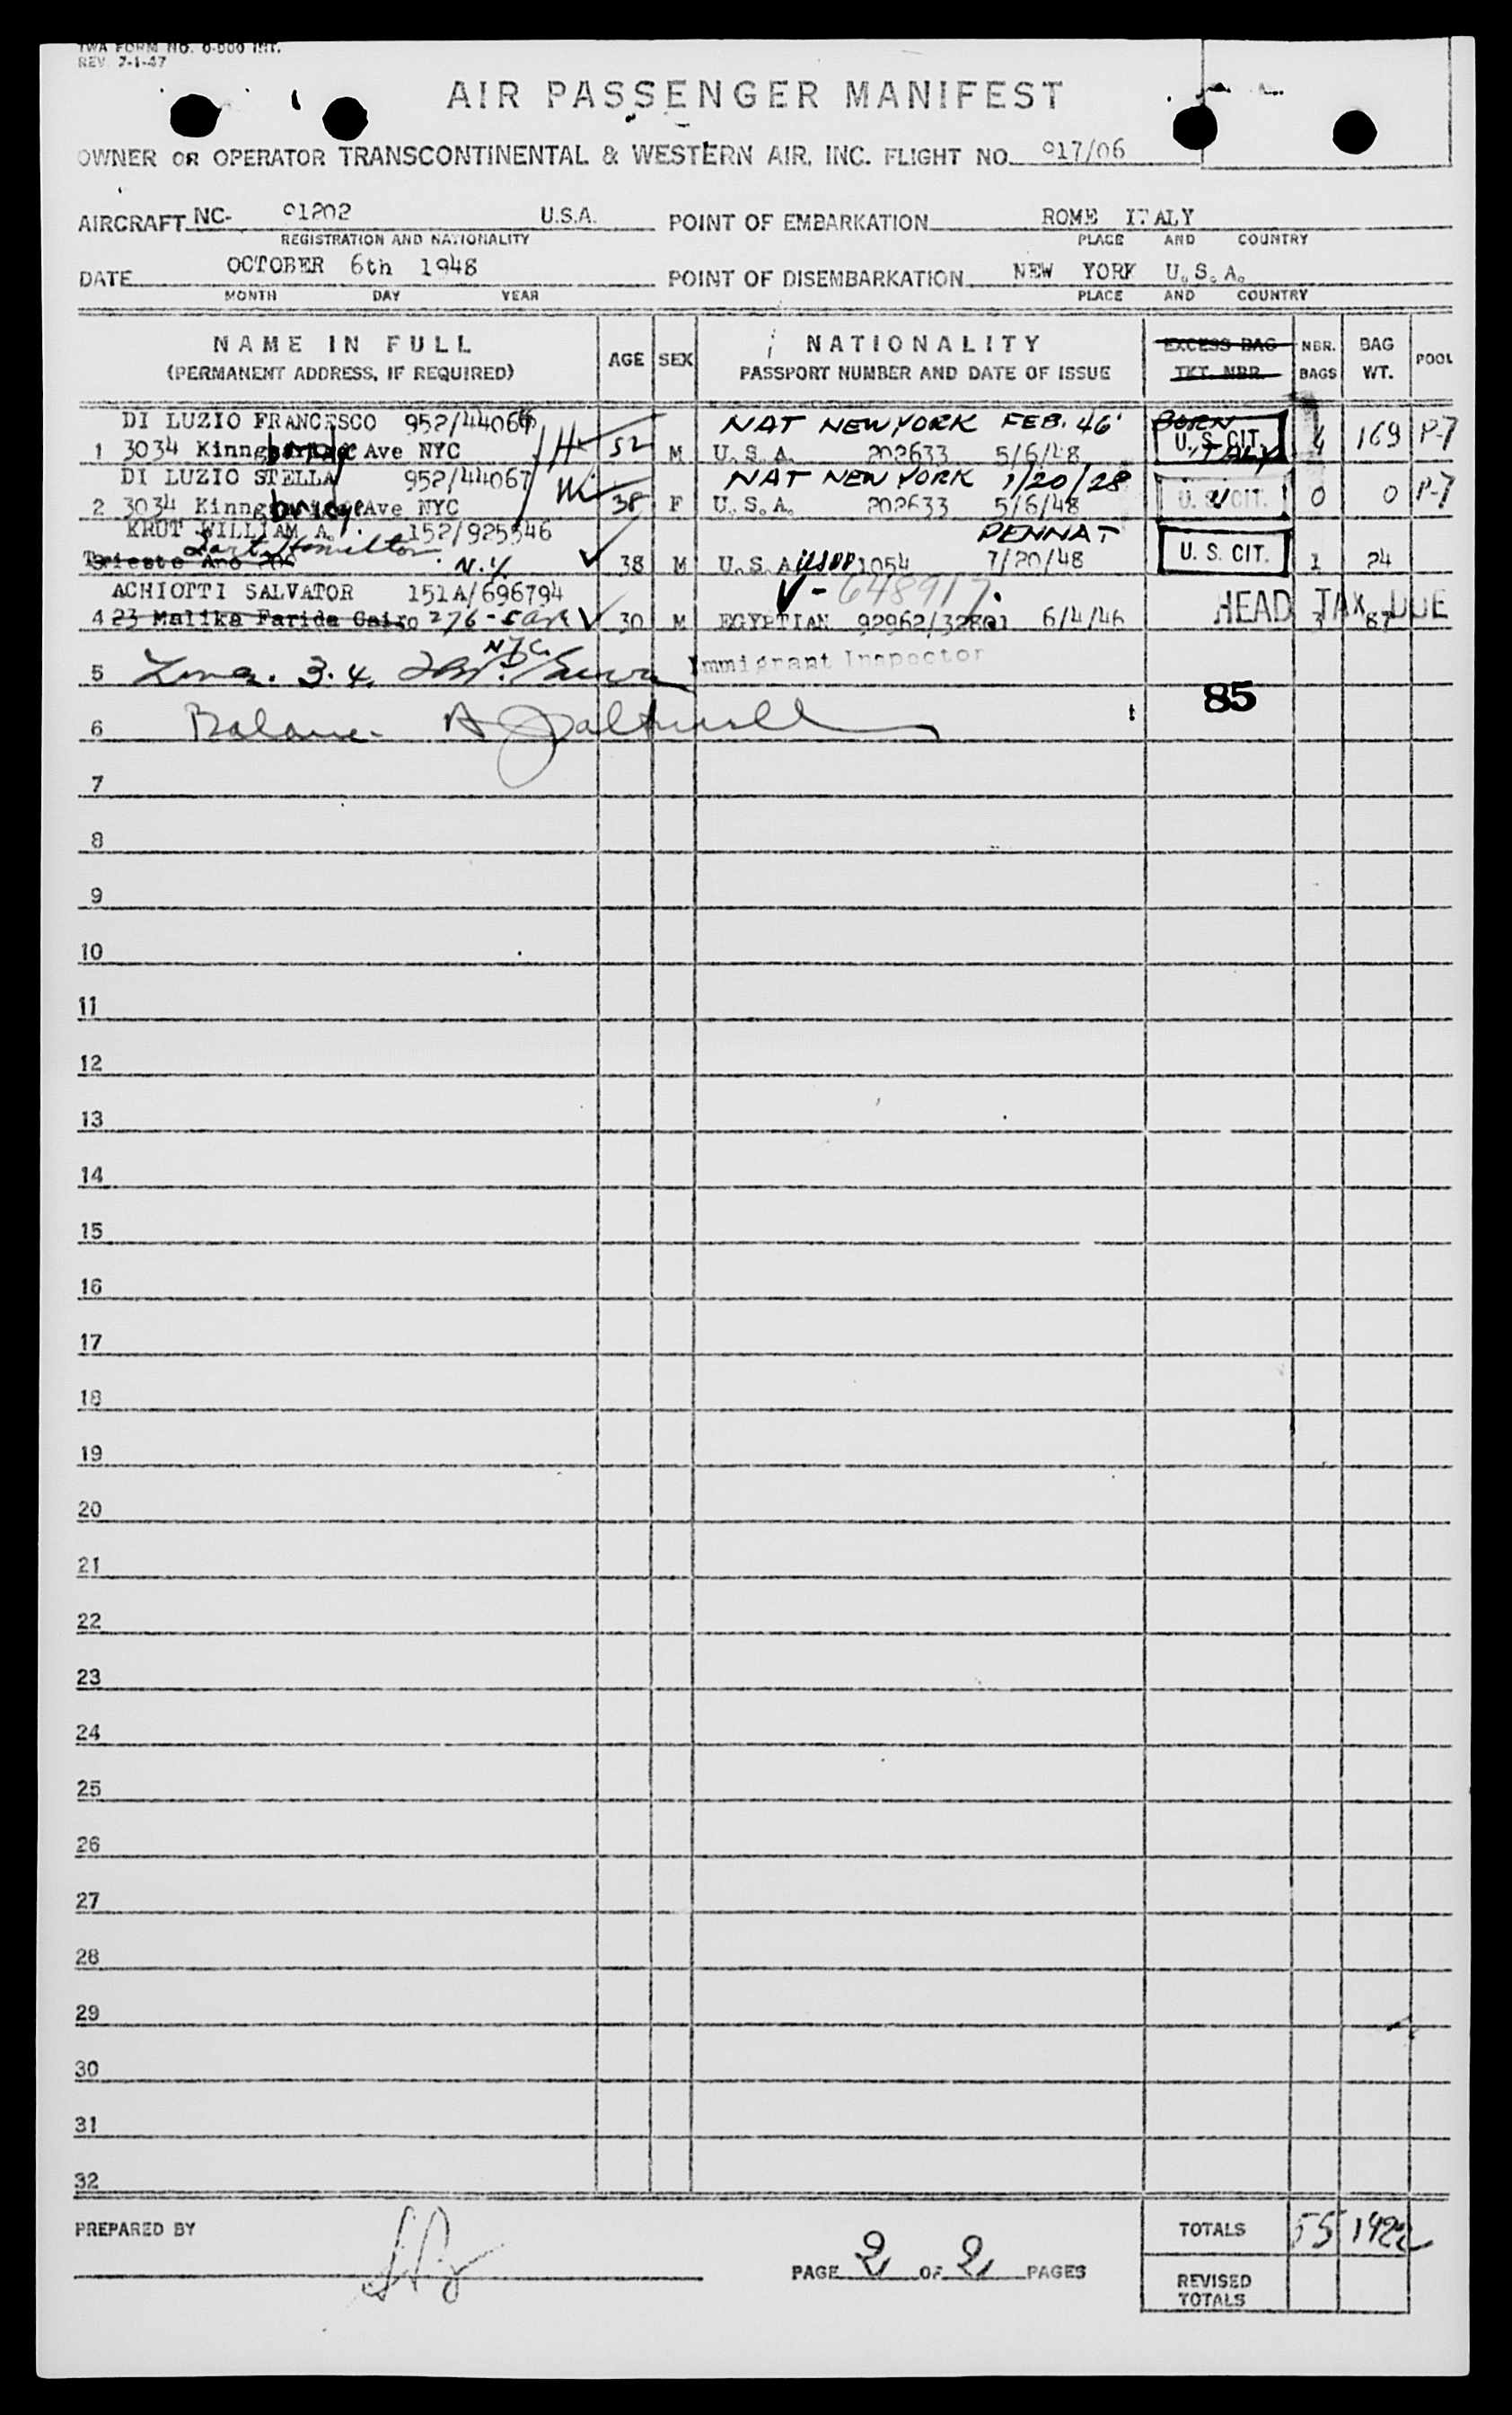 TWA FORM NO. 0-500 INT.
REV 7-1-47
AIR PASSENGER MANIFEST
OWNER OR OPERATOR TRANSCONTINENTAL & WESTERN AIR, INC. FLIGHT NO. 917/06
AIRCRAFT NC- 91202 U.S.A. POINT OF EMBARKATION ROME ITALY
REGISTRATION AND NATIONALITY PLACE AND COUNTRY
DATE OCTOBER 6th 1948 POINT OF DISEMBARKATION NEW YORK U.S.A.
MONTH DAY YEAR PLACE AND COUNTRY
NAME IN FULL AGE SEX NATIONALITY EXCESS BAG NBR. BAG POOL
(PERMANENT ADDRESS, IF REQUIRED) PASSPORT NUMBER AND DATE OF ISSUE TKT. NBR. BAGS WT.
DI LUZIO FRANCESCO 952/44066 NAT NEW YORK FEB. 46' BORN
1 3034 Kinngbridge Ave NYC H 52 M U.S.A. 202633 5/6/48 U.S. CIT. ITALY 4 169 P-7
DI LUZIO STELLA 952/44067 NAT NEW YORK 1/20/28
2 3034 Kinngbridge Ave NYC W 38 F U.S.A. 202633 5/6/48 U.S. CIT. 0 0 P-7
KRUT WILLIAM A. 152/925546 PENNAT
Trieste Hamilton N.Y. 38 M U.S.A. 1054 7/20/48 U. S. CIT. 1 24
ACHIOTTI SALVATOR 151A/696794 V-648917. HEAD TAX DUE
4 23 Malika Farida Cairo 276-5 Ave 30 M EGYPTIAN 92962/32801 6/4/46 3 87
N.Y.C.
5 3.4. Immigrant Inspector
85
6
7
8
9
10
11
12
13
14
15
16
17
18
19
20
21
22
23
24
25
26
27
28
29
30
31
32
PREPARED BY TOTALS 55 1422
PAGE 2 OF 2 PAGES
REVISED
TOTALS